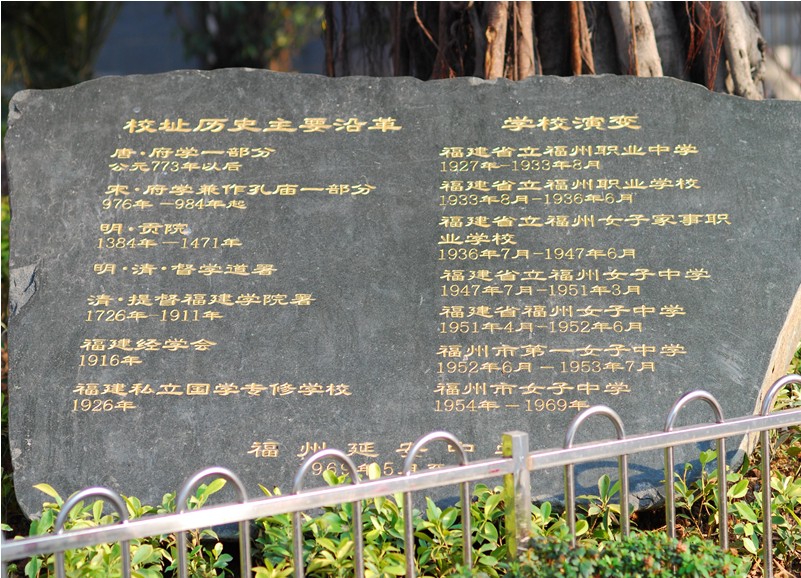 校址历史主要沿革
唐·府学一部分
公元773年以后
宋·府学兼作孔庙一部分
976年—984年起
明·贡院
1384年—1471年
明·清·督学道署
清·提督福建学院署
1726年—1911年
福建经学会
1916年
福建私立国学专修学校
1926年
学校演变
福建省立福州职业中学
1927年-1933年8月
福建省立福州职业学校
1933年8月-1936年6月
福建省立福州女子家事职
业学校
1936年7月-1947年6月
福建省立福州女子中学
1947年7月-1951年3月
福建省福州女子中学
1951年4月-1952年6月
福州市第一女子中学
1952年6月-1953年7月
福州市女子中学
1954年-1969年
福州延安中学
1969年5月至